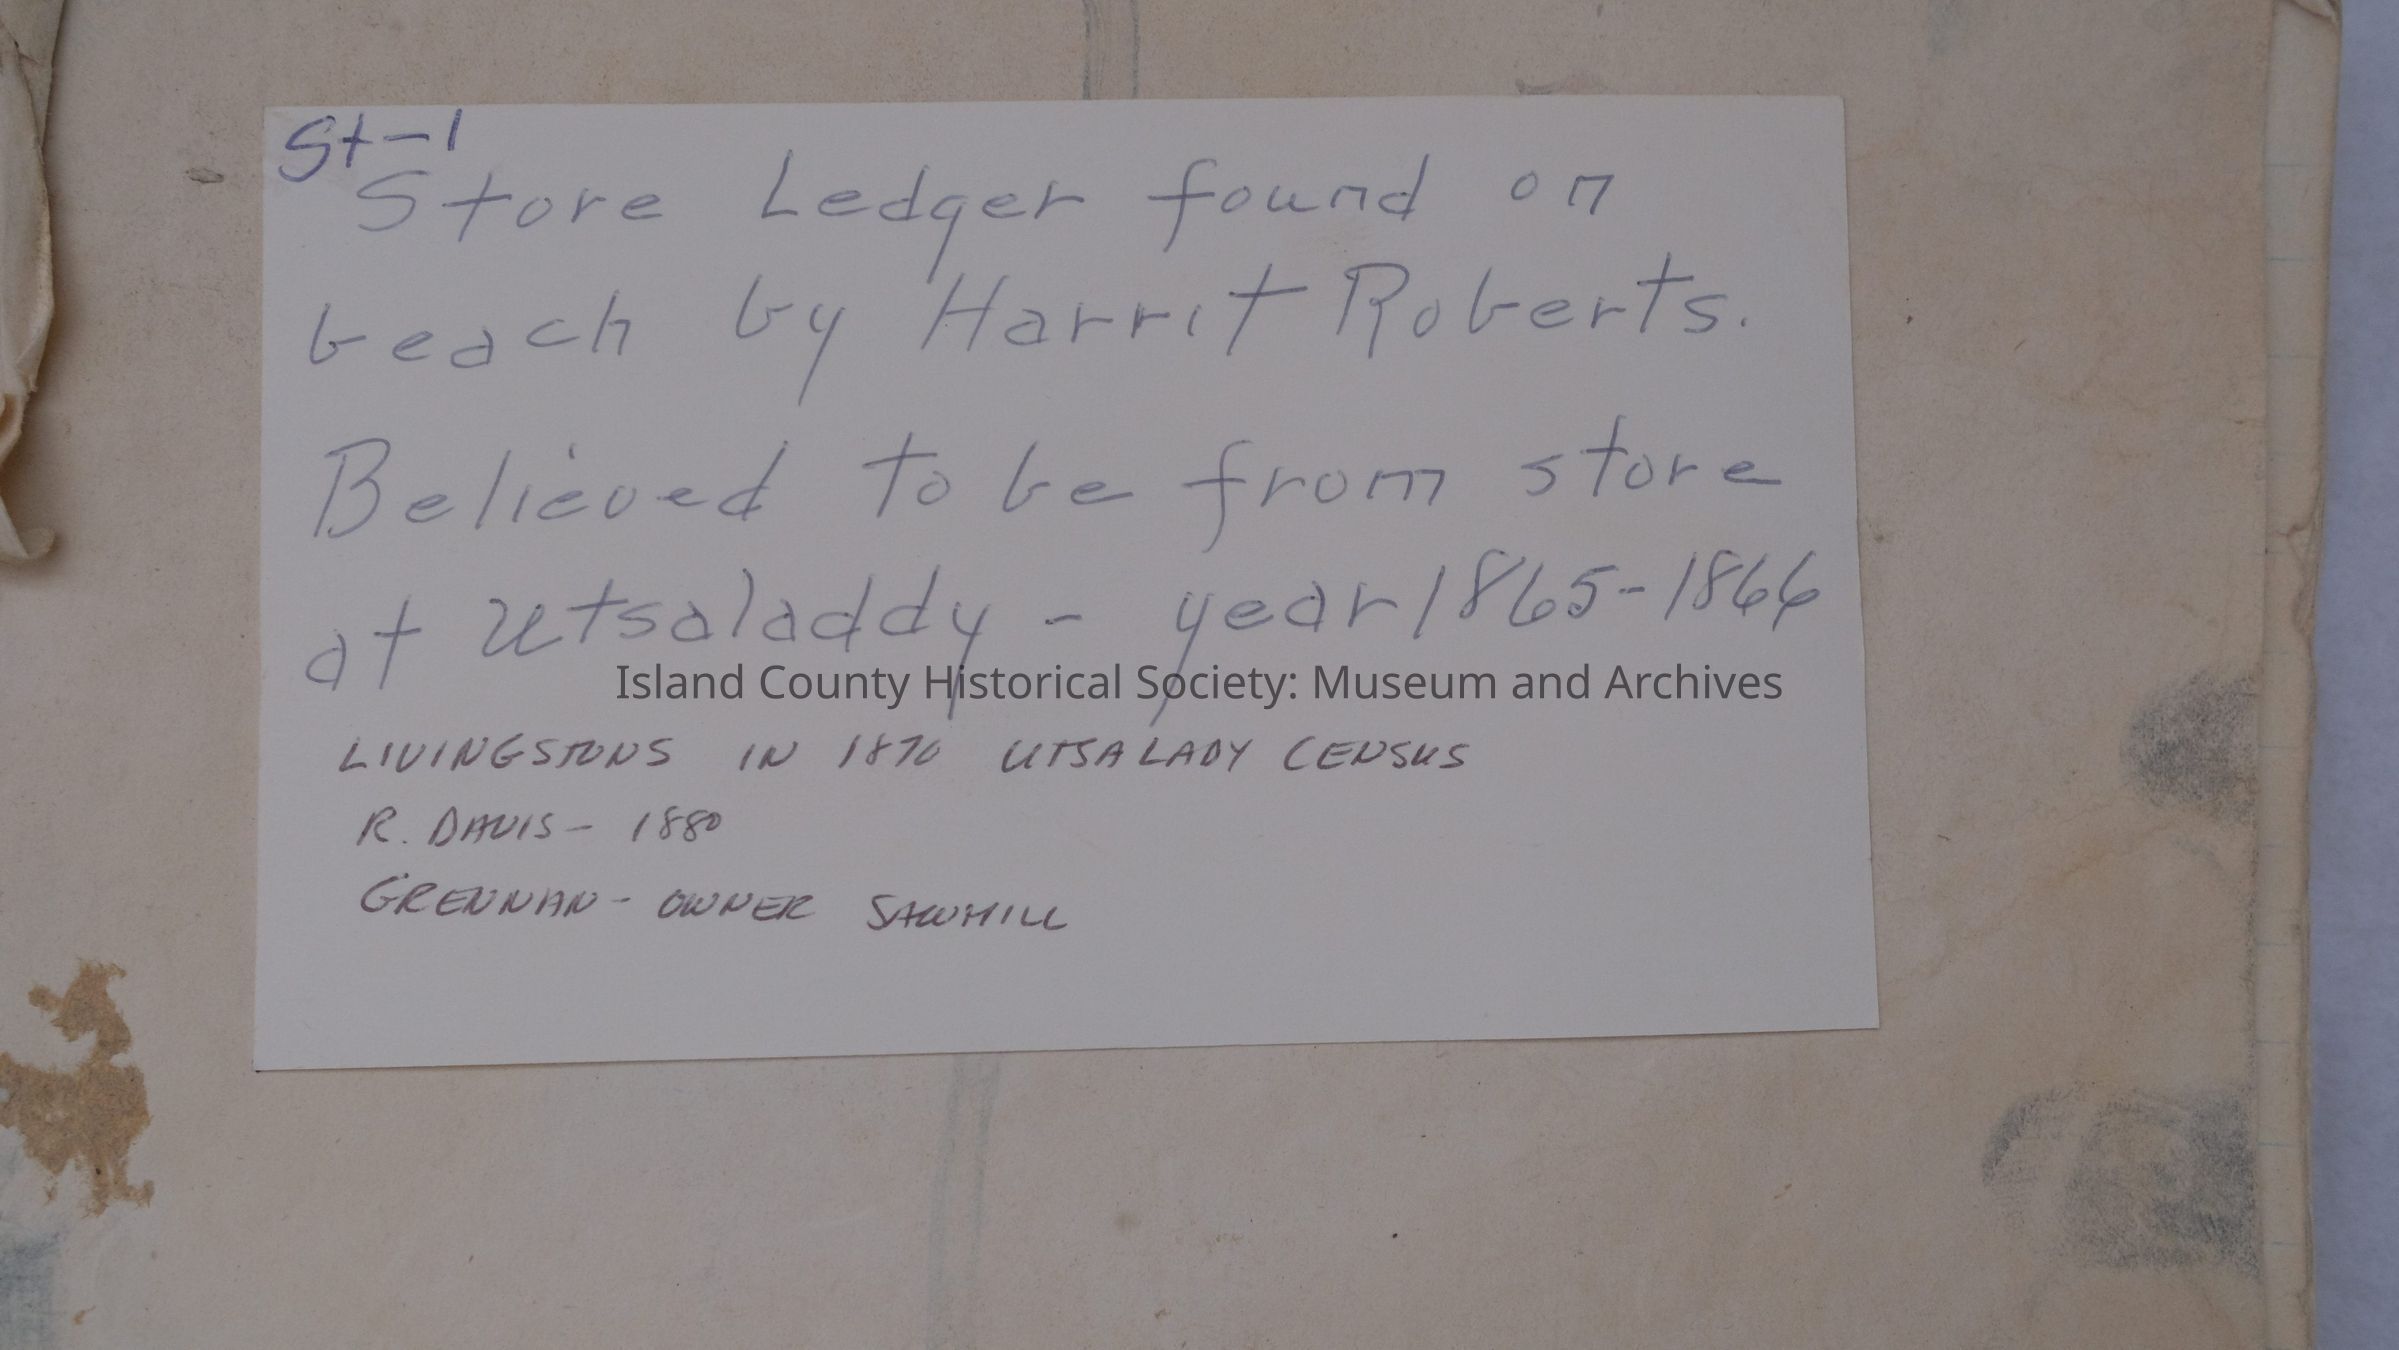 St-1
Store Ledger found on
beach by Harrit Roberts.
Believed to be from store
at Utsaladdy - year 1865-1866
Island County Historical Society: Museum and Archives
LIVINGSTONS IN 1870 UTSALADY CENSUS
R. DAVIS - 1880
GRENNAN - OWNER SAWMILL